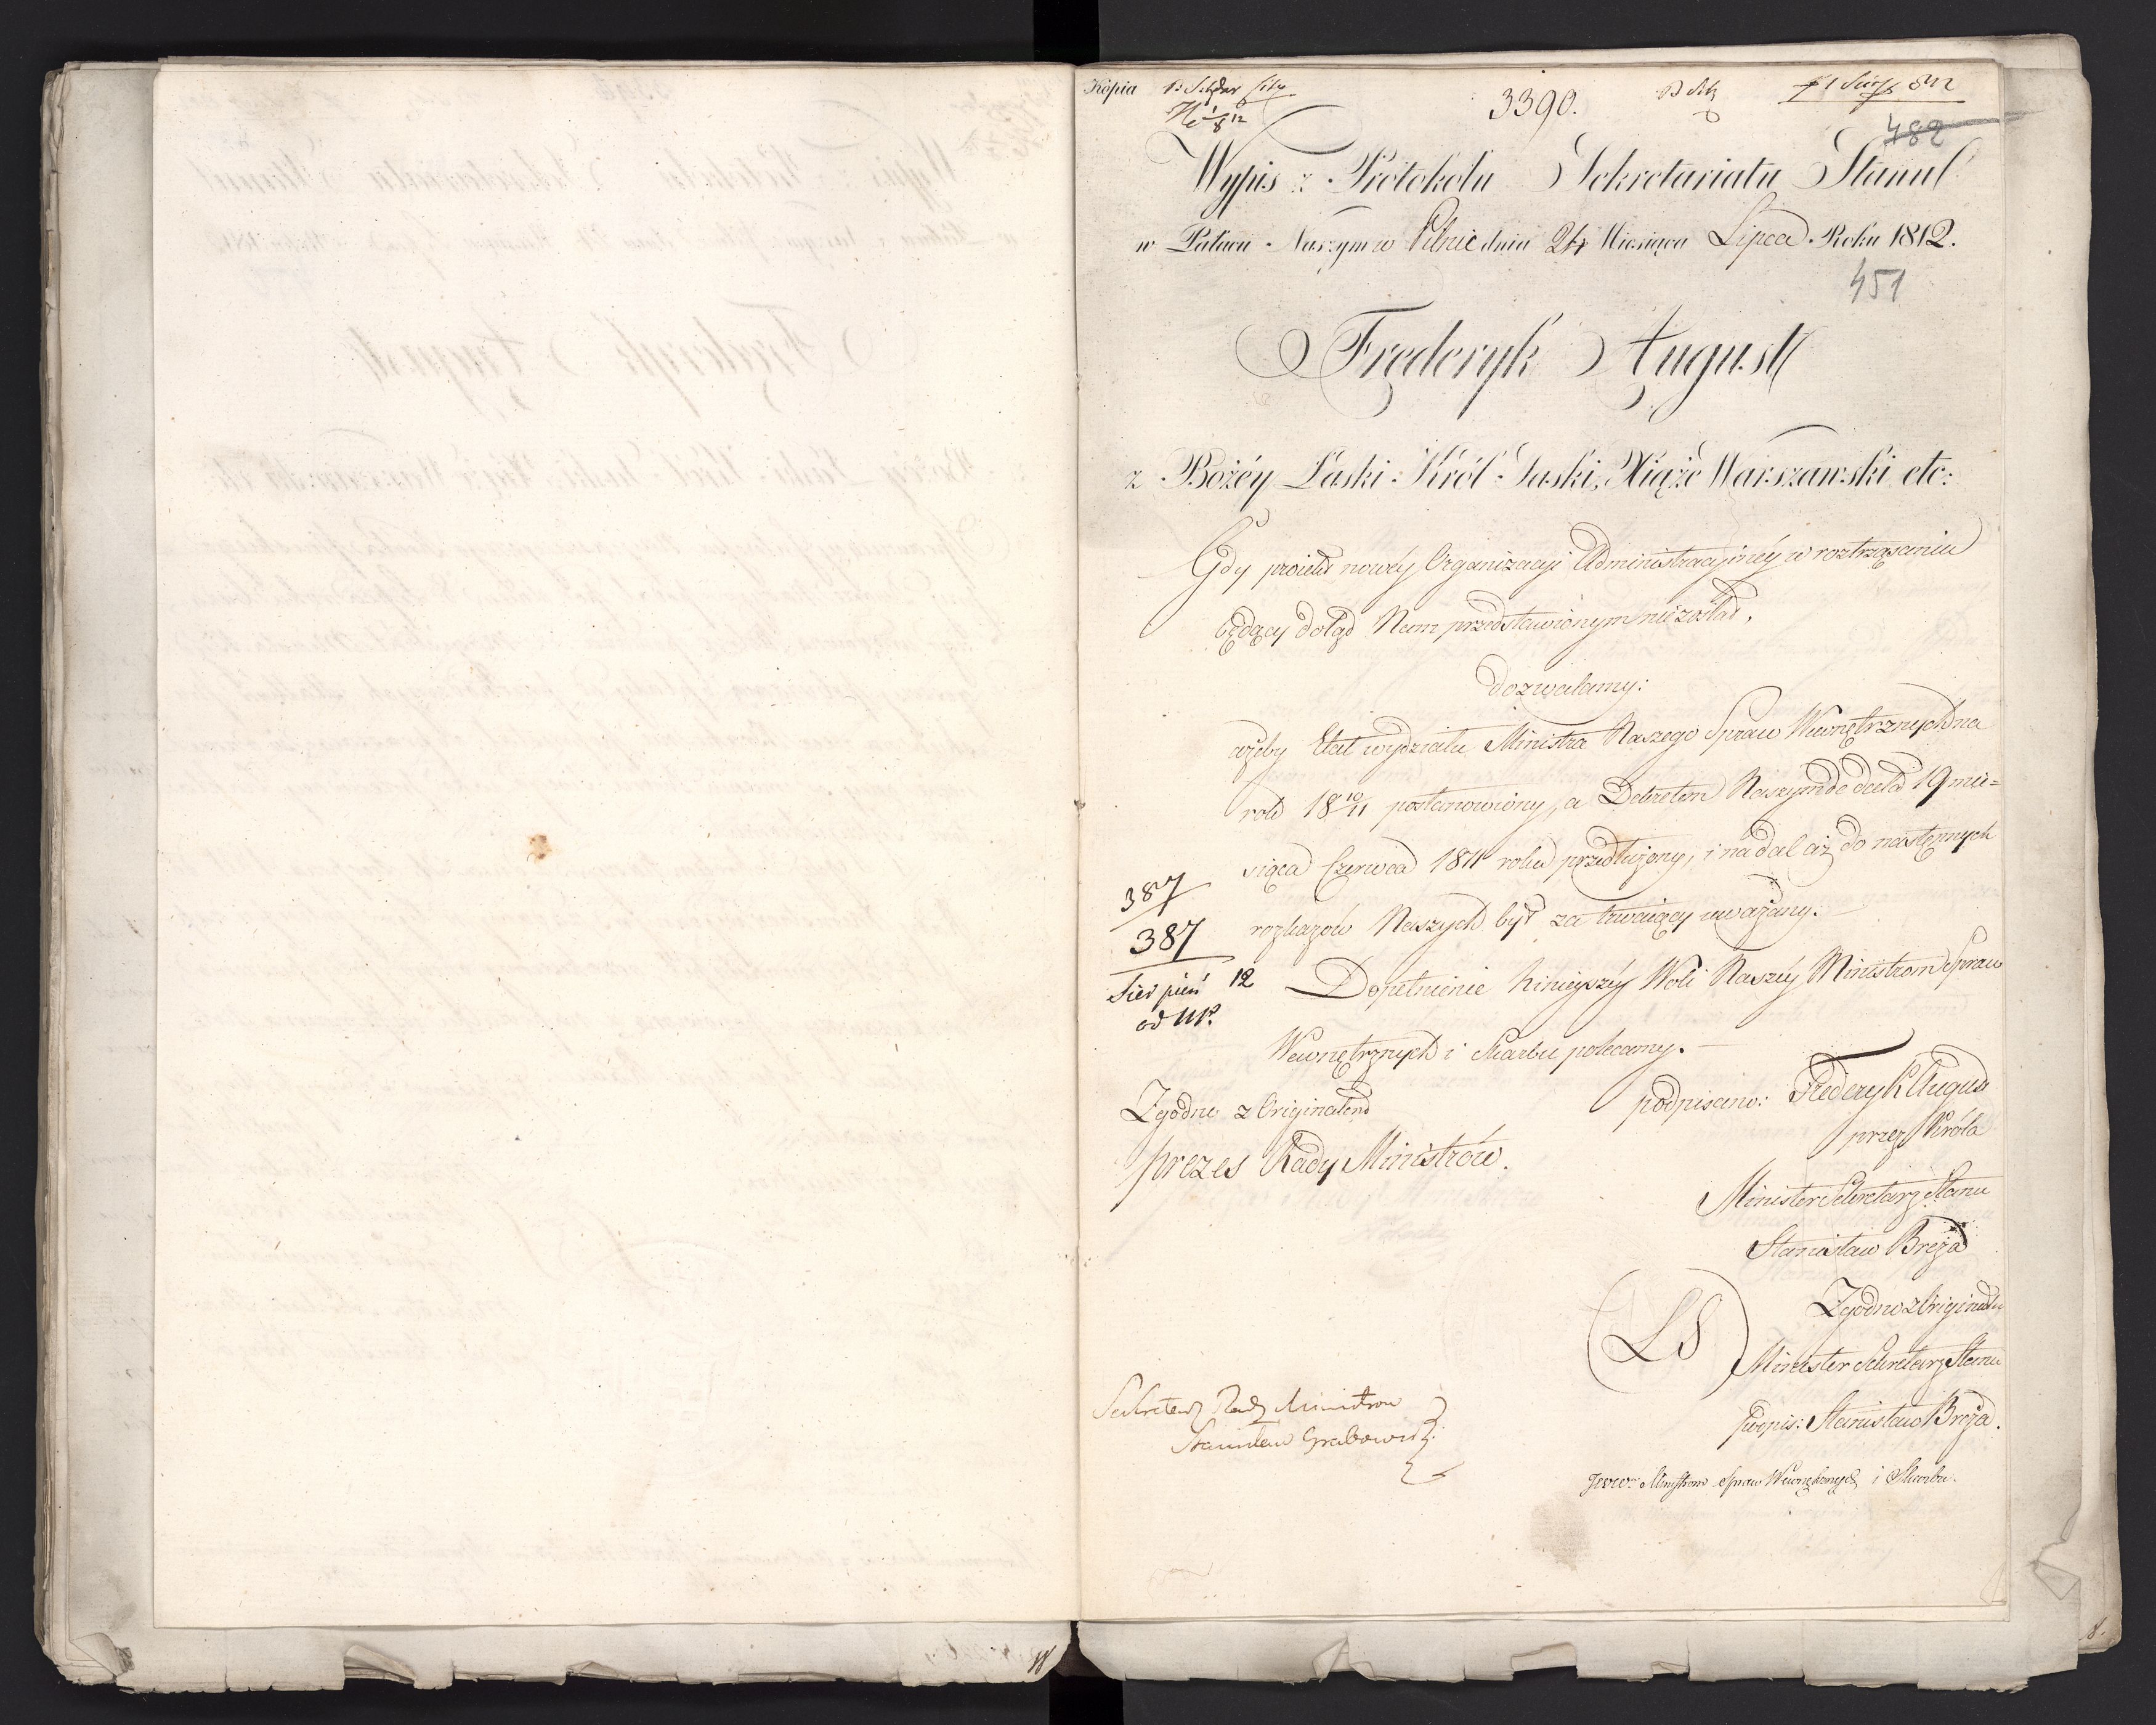 Kopia
3390.
482
Wypis z Protokołu Sekretariatu Stanu
w Pałacu Naszym w Pilnic dnia 24 Miesiąca Lipca Roku 1812.
451
Fryderyk August
z Bożéy Łaski Król Saski, Xiążę Warszawski etc:
Gdy proiekt nowéy Organizacyi Administracyinéy w roztrząsaniu
będący dotąd Nam przedstawionym nie został,
dozwalamy:
ażeby Etat wydziału Ministra Naszego Spraw Wewnętrznych na
rok 18 10/11 postanowiony, a Dekretem Naszym de dato 19 mie=
siąca Czerwca 1811 roku przedłużony, i nadal aż do następnych
rozkazów Naszych był za trwaiący uważany.
387
387
Sierpień 12
Dopełnienie ninieyszéy Woli Naszéy Ministrom Spraw
Wewnętrznych i Skarbu polecamy.
Zgodno z Originałem
prezes Rady Ministrów.
podpisano: Frederyk August
przez Króla
Minister Sekretarz Stanu
Stanisław Breza
(LS)
Zgodno z Originałem
Minister Sekretarz Stanu
podpis: Stanisław Breza.
Sekretarz Rady Ministrow
Stanisław Grabowski
Ministrom Spraw Wewnętrznych i Skarbu.